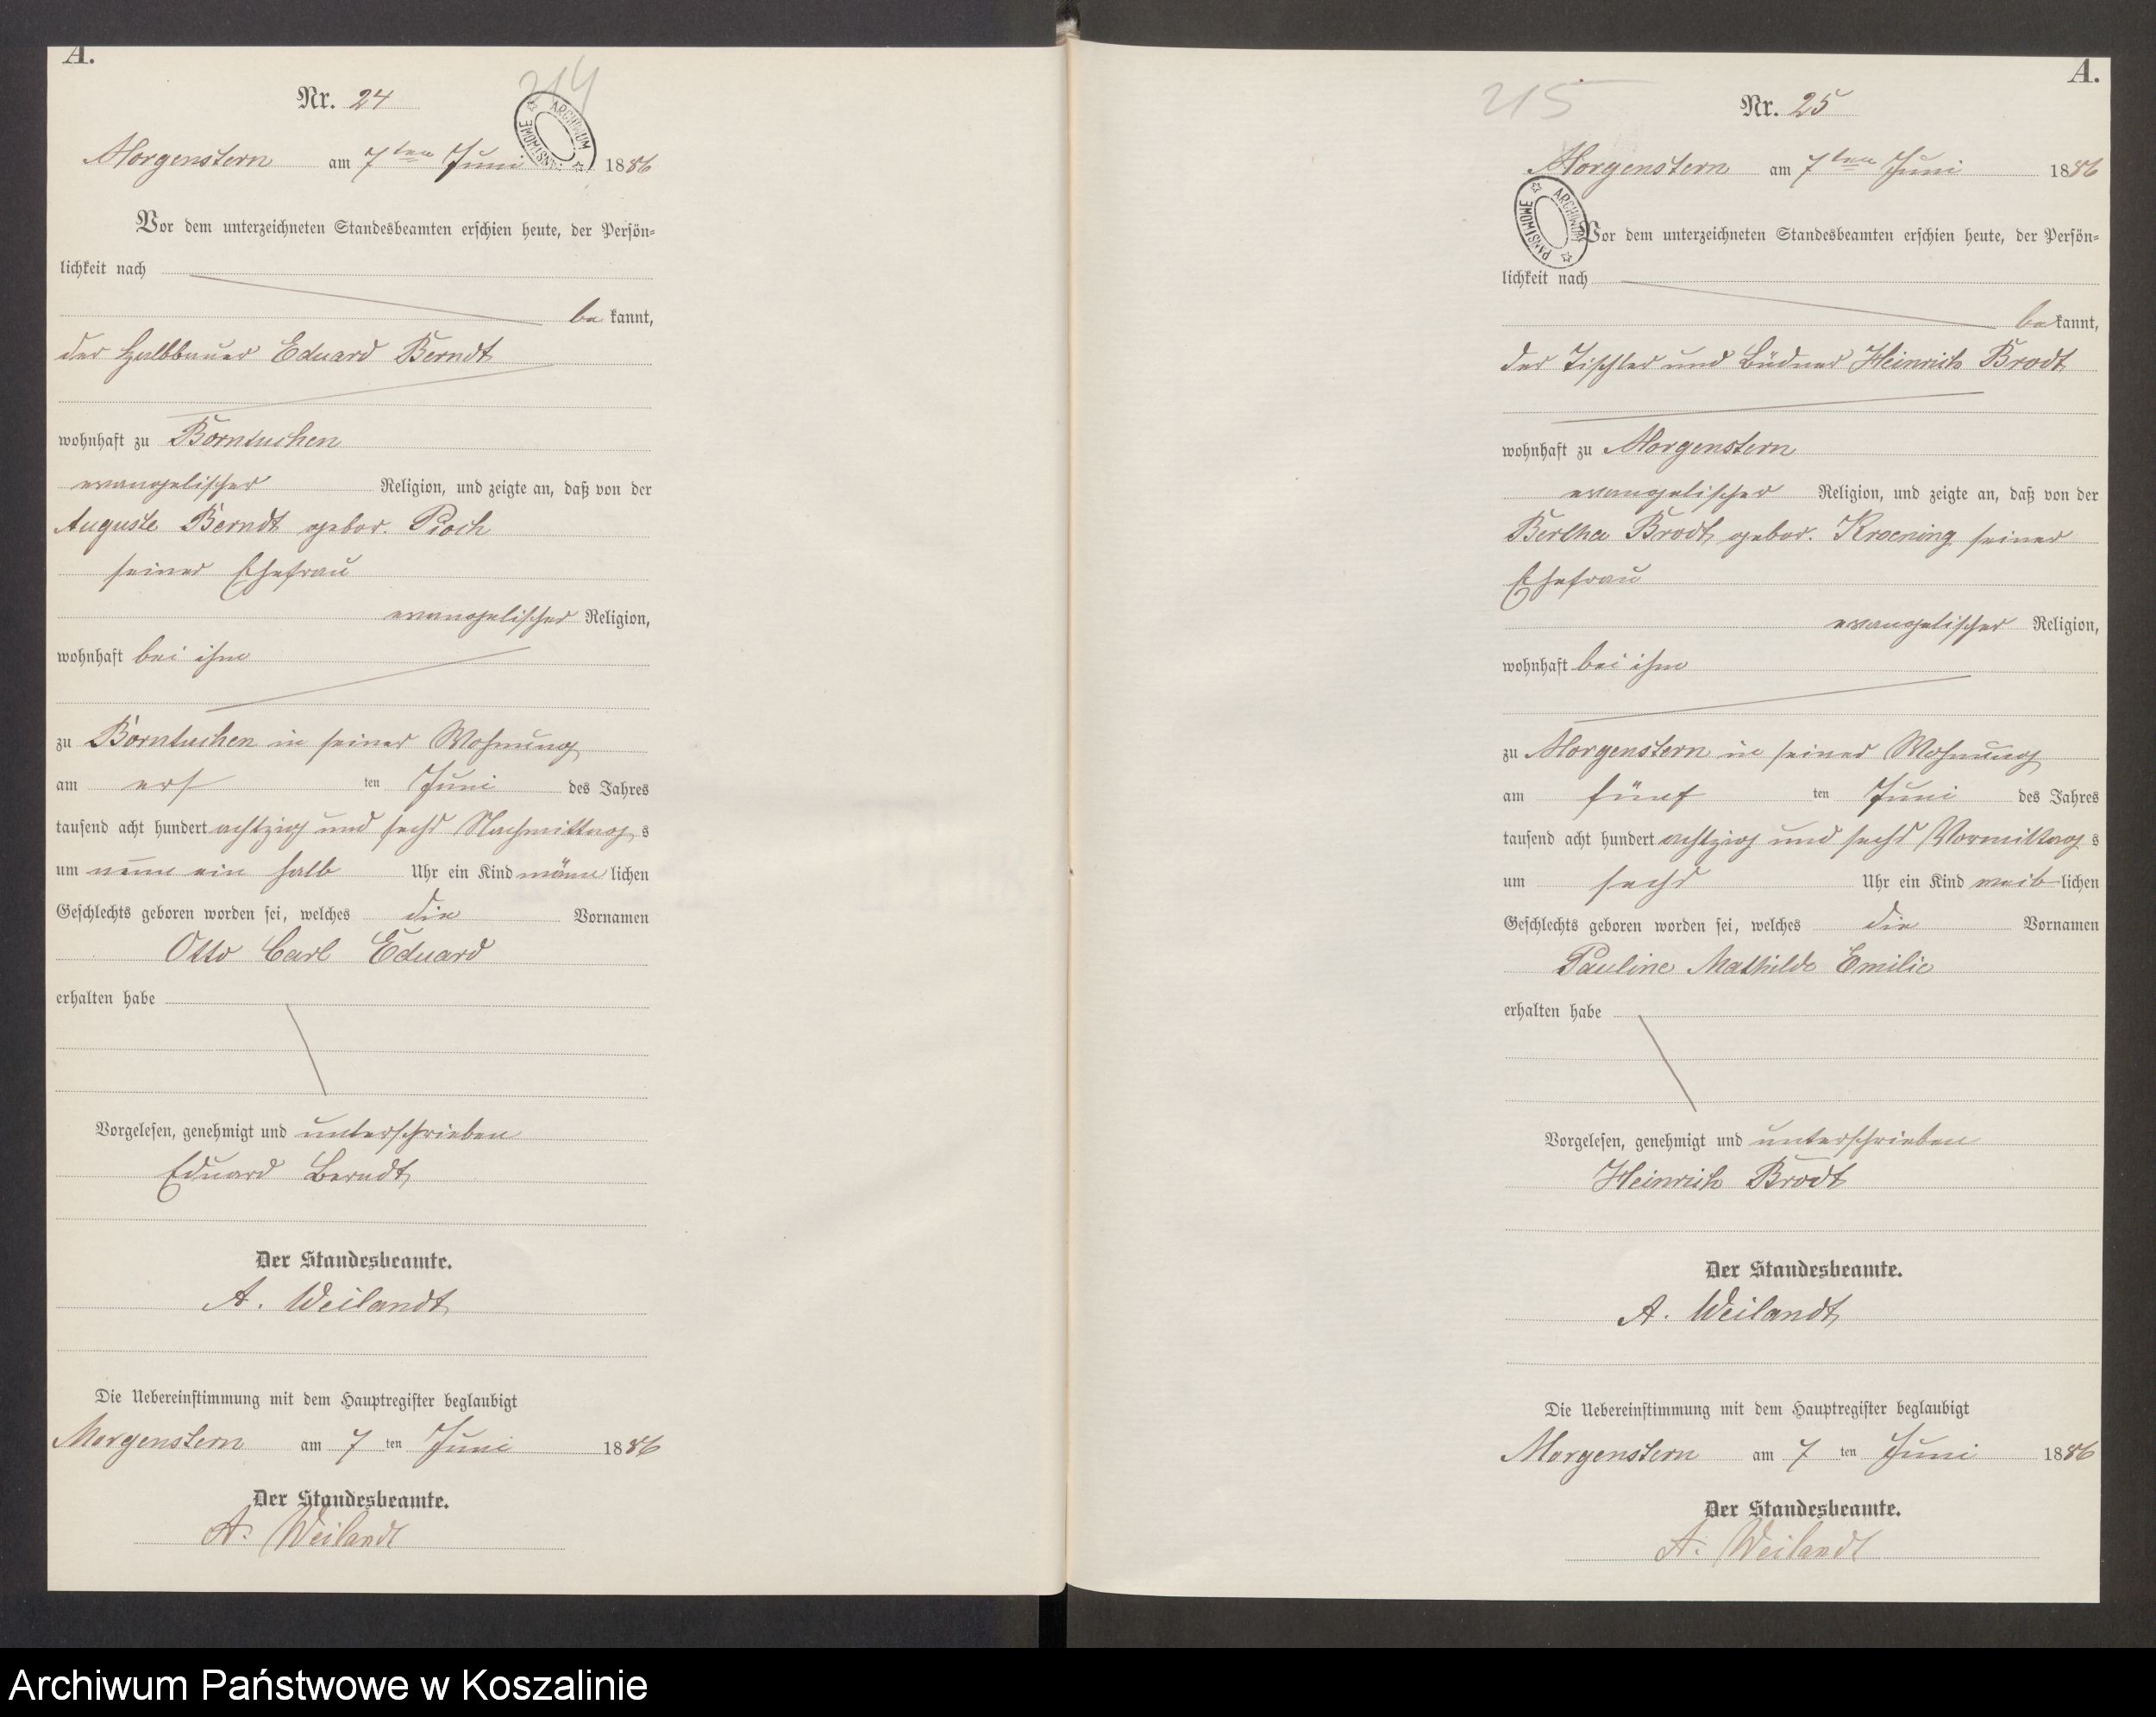 A.
Nr. 24
214
ARCHIWUM PAŃSTWOWE
Morgenstern am 7ten Juni 1886
Vor dem unterzeichneten Standesbeamten erschien heute, der Persön=
lichkeit nach
be kannt,
der Halbbauer Eduard Berndt
wohnhaft zu Borntuchen
evangelischer Religion, und zeigte an, daß von der
Auguste Berndt gebor. Pioch
seiner Ehefrau
evangelischer Religion,
wohnhaft bei ihm
zu Borntuchen in seiner Wohnung
am ers ten Juni des Jahres
tausend acht hundert achtzig und sechs Nachmittag s
um neun ein halb Uhr ein Kind männ lichen
Geschlechts geboren worden sei, welches die Vornamen
Otto Carl Eduard
erhalten habe
Vorgelesen, genehmigt und unterschrieben
Eduard Berndt
Der Standesbeamte.
A. Weilandt
Die Uebereinstimmung mit dem Hauptregister beglaubigt
Morgenstern am 7 ten Juni 1886
Der Standesbeamte.
A. Weilandt
A.
215
Nr. 25
Morgenstern am 7ten Juni 1886
ARCHIWUM PAŃSTWOWE
Vor dem unterzeichneten Standesbeamten erschien heute, der Persön=
lichkeit nach
be kannt,
der Tischler und Büdner Heinrich Brodt
wohnhaft zu Morgenstern
evangelischer Religion, und zeigte an, daß von der
Bertha Brodt, gebor. Kroening seiner
Ehefrau
evangelischer Religion,
wohnhaft bei ihm
zu Morgenstern in seiner Wohnung
am fünf ten Juni des Jahres
tausend acht hundert achtzig und sechs Vormittag s
um sechs Uhr ein Kind weib lichen
Geschlechts geboren worden sei, welches die Vornamen
Pauline Mathilde Emilie
erhalten habe
Vorgelesen, genehmigt und unterschrieben
Heinrich Brodt
Der Standesbeamte.
A. Weilandt
Die Uebereinstimmung mit dem Hauptregister beglaubigt
Morgenstern am 7 ten Juni 1886
Der Standesbeamte.
A. Weilandt
Archiwum Państwowe w Koszalinie